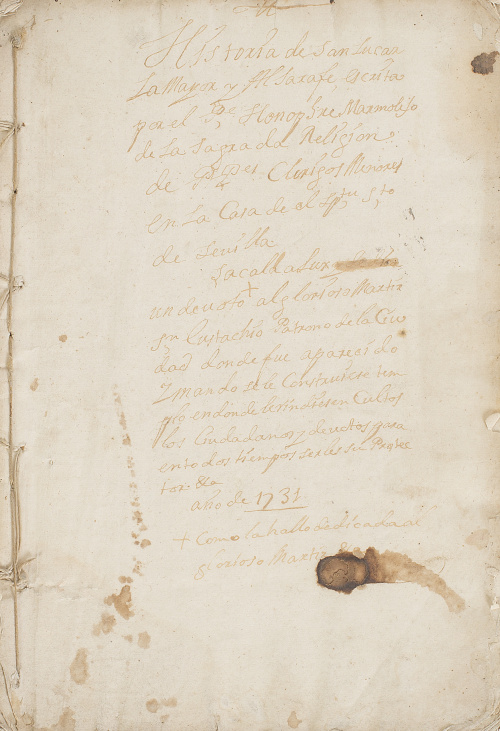 Historia de San Lucar
La Mayor y Alsarafe, escrita
por el Pe, Honophre Marmolejo
de La Sagrada Religion
de PPes. Clerigos Menores
en La Casa de el Sptu Sto
de Sevilla
Sacala a Lus
un devoto + al glorioso Martir
Sn Eustachio Patrono de la Ciu
dad donde fue aparesido
Y mando se le Construiese tem
plo en donde le rindiesen Cultos
los Ciudadanos, y devotos para
en todos tiempos serles su Protec
tor &a
año de 1731
+ Como la hallo dedicada al
glorioso Martir &a